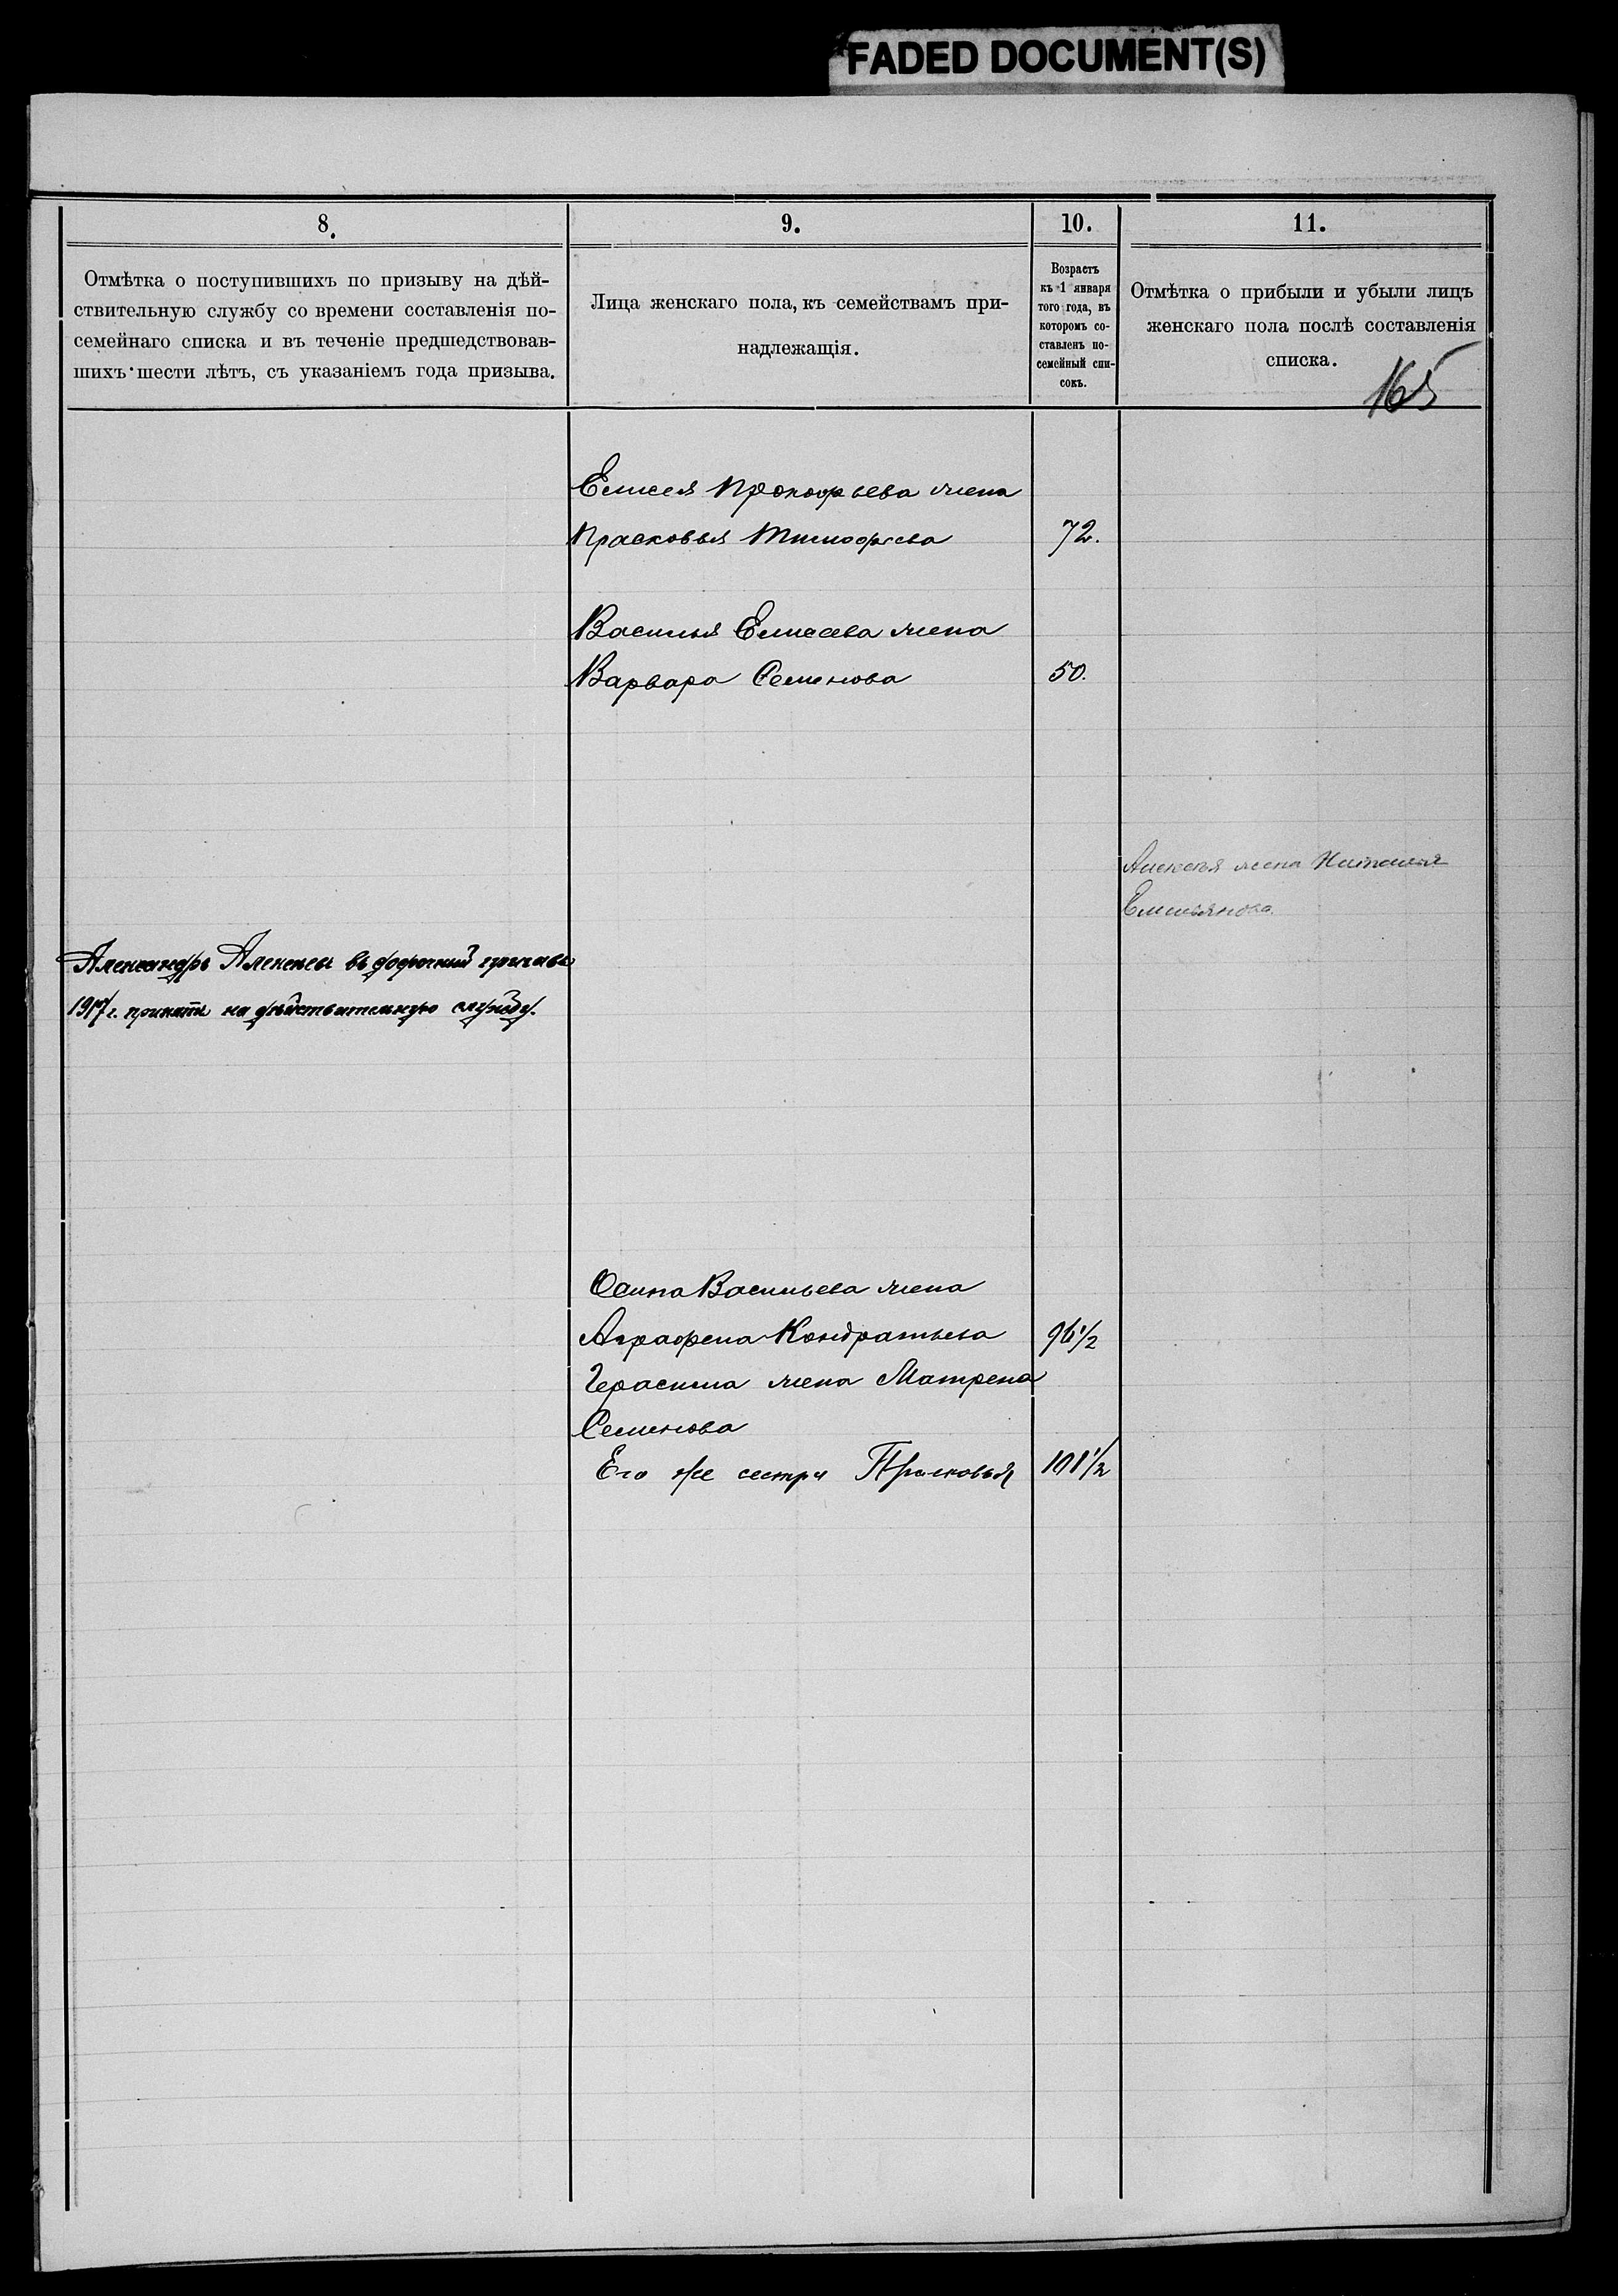 FADED DOCUMENT(S)
8.
9.
10.
11.
Отмѣтка о поступившихъ по призыву на дѣй-
ствительную службу со времени составленія по-
семейнаго списка и въ теченіе предшедствовав-
шихъ шести лѣтъ, съ указаніемъ года призыва.
Лица женскаго пола, къ семействамъ при-
надлежащія.
Возрастъ
къ 1 января
того года, въ
которомъ со-
ставленъ по-
семейный спи-
сокъ.
Отмѣтка о прибыли и убыли лицъ
женскаго пола послѣ составленія
списка.
165
Елисея Прокофьева жена
Прасковья Тимофеева 72.
Василья Елисеева жена
Варвара Семенова 50.
Алексѣя жена Наталья
Емельянова
Александръ Алексѣевъ въ досрочный призывъ
1917 г. принятъ на дѣйствительную службу.
Осипа Васильева жена
Аграфена Кондратьева 96 1/2
Герасима жена Матрена
Семенова
Его же сестра Прасковья 101 1/2